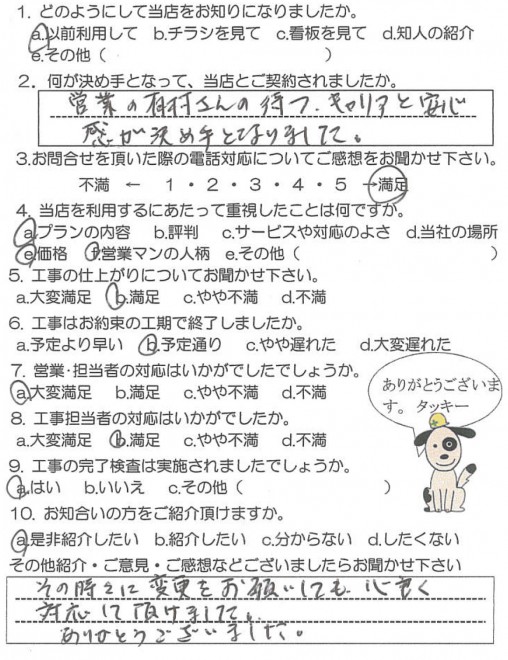 1. どのようにして当店をお知りになりましたか。
a.以前利用して b.チラシを見て c.看板を見て d.知人の紹介
e.その他（ ）
2. 何が決め手となって、当店とご契約されましたか。
営業の有村さんの持つ、キャリアと安心
感が決め手となりまして。
3.お問合せを頂いた際の電話対応についてご感想をお聞かせ下さい。
不満 ← 1・2・3・4・5 →満足
4. 当店を利用するにあたって重視したことは何ですか。
a.プランの内容 b.評判 c.サービスや対応のよさ d.当社の場所
e.価格 f.営業マンの人柄 e.その他（ ）
5. 工事の仕上がりについてお聞かせ下さい。
a.大変満足 b.満足 c.やや不満 d.不満
6. 工事はお約束の工期で終了しましたか。
a.予定より早い b.予定通り c.やや遅れた d.大変遅れた
7. 営業・担当者の対応はいかがでしたでしょうか。
a.大変満足 b.満足 c.やや不満 d.不満
8. 工事担当者の対応はいかがでしたか。
a.大変満足 b.満足 c.やや不満 d.不満
9. 工事の完了検査は実施されましたでしょうか。
a.はい b.いいえ c.その他（ ）
10. お知合いの方をご紹介頂けますか。
a.是非紹介したい b.紹介したい c.分からない d.したくない
ありがとうございま
す。 タッキー
その他紹介・ご意見・ご感想などございましたらお聞かせ下さい
その時々に変更をお願いしても、心良く
対応して頂けまして、
ありがとうございました。